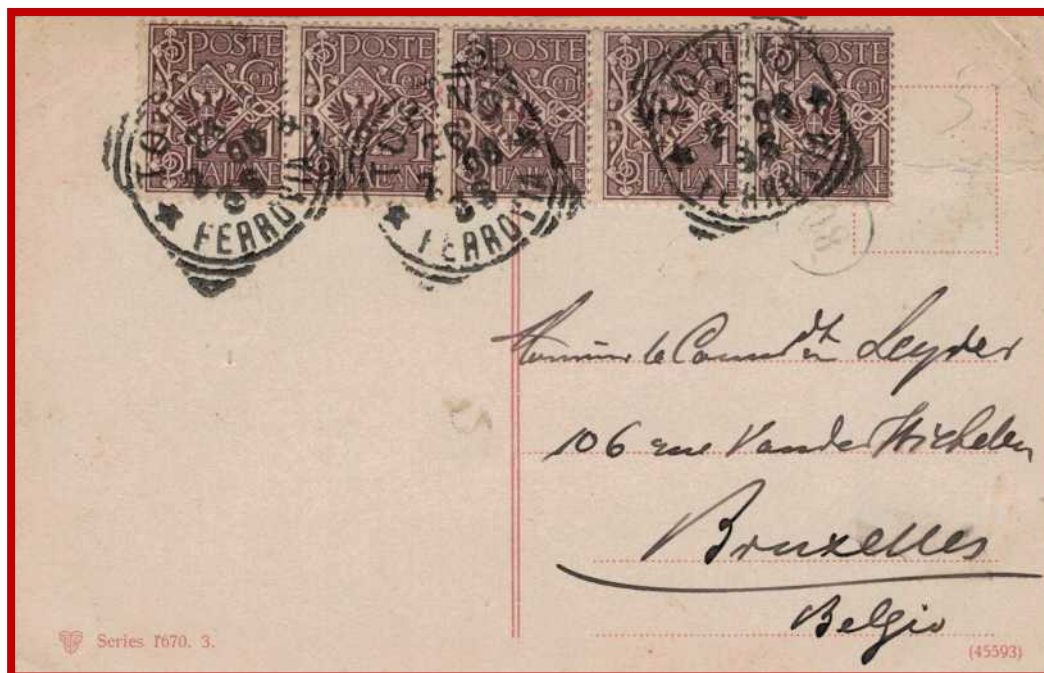 POSTE Cent 1 ITALIANE
POSTE Cent 1 ITALIANE
POSTE Cent 1 ITALIANE
POSTE Cent 1 ITALIANE
POSTE Cent 1 ITALIANE
TORINO
FERROVIA
FERROVIA
FERROVIA
08
Monsieur le Command dt Leyder
106 rue Vander
Bruxelles
Belgio
Series 1670. 3.
(45593)